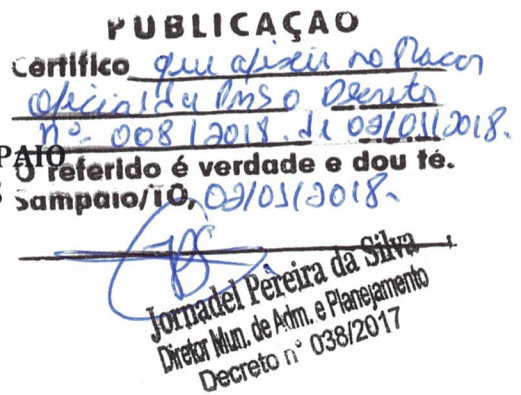 PUBLICAÇÃO
Certifico que afixei no Placar
Oficial da PMS o Decreto
nº 008/2018. de 02/01/2018.
PAIO
O referido é verdade e dou fé.
Sampaio/TO, 02/01/2018.
Jornadel Pereira da Silva
Diretor Mun. de Adm. e Planejamento
Decreto n° 038/2017